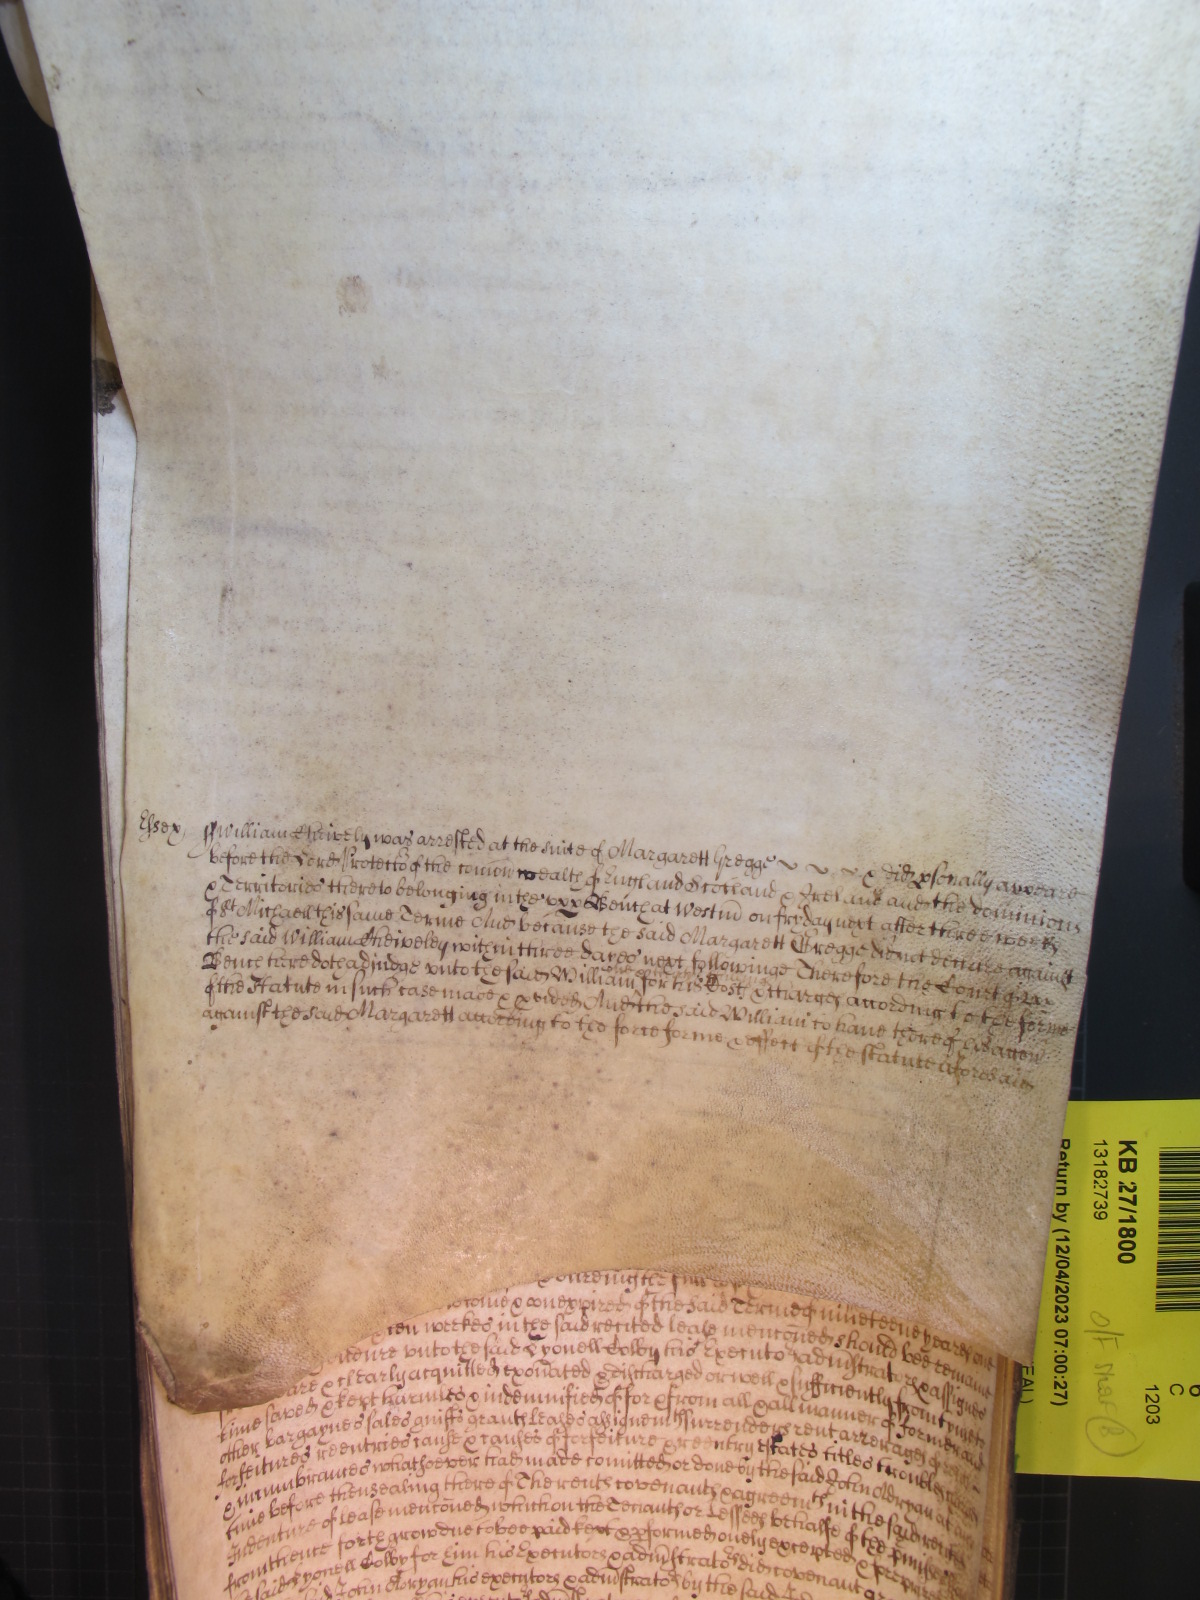 Essex William Cheiveley was arrested at the suite of Margarett Gregge & did psonally appeare
before the Lord Protector of the comon wealth of England Scotland & Ireland and the dominions
& Territories thereto belonging in the vpp Bench at Westm on fryday next after three weeks
of St Michaell this same Terme And because the said Margarett Gregge did not declare against
the said William Cheiveley within three dayes next followinge Therefore the Court of vpp
Bench here doth adjudge vnto the said William for his Cost & charges according to the forme
of the Statute in such case made & pvided And the said William to have thereof his
against the said Margarett according to the force forme & effect of the statute aforesaid
to come & vnexpired of the said Terme of nineteene yeares
weekes in the said recited lease mentioned should bee
vnto the said Lyonell Colby his Executors administrators & assignes
& clearly acquitted exonerated & discharged or well & sufficiently from tyme to
time saved & kept harmles & indemnified of for & from all & all manner of former and
other bargaynes sales guifts grants leases assignem surrenders rent arrerages of rent
forfeitures reentries cause & causes of forfeiture & reentry estates titles troubles
& incumbrances whatsoever had made comitted or done by the said John at any
time before thensealing there of The rents covenants & agreemts in the said recited
Indenture of lease mentioned which on the Tenants or Lessees behalfe of the pmisses
from thence forth grow due to bee paid kept & pformed onely excepted &
said Lyonell Colby for him his Executors & administrators did covenant
John his executors & administrators by the said
KB 27/1800
13182739
Return by (12/04/2023 07:00:27)
1203
C